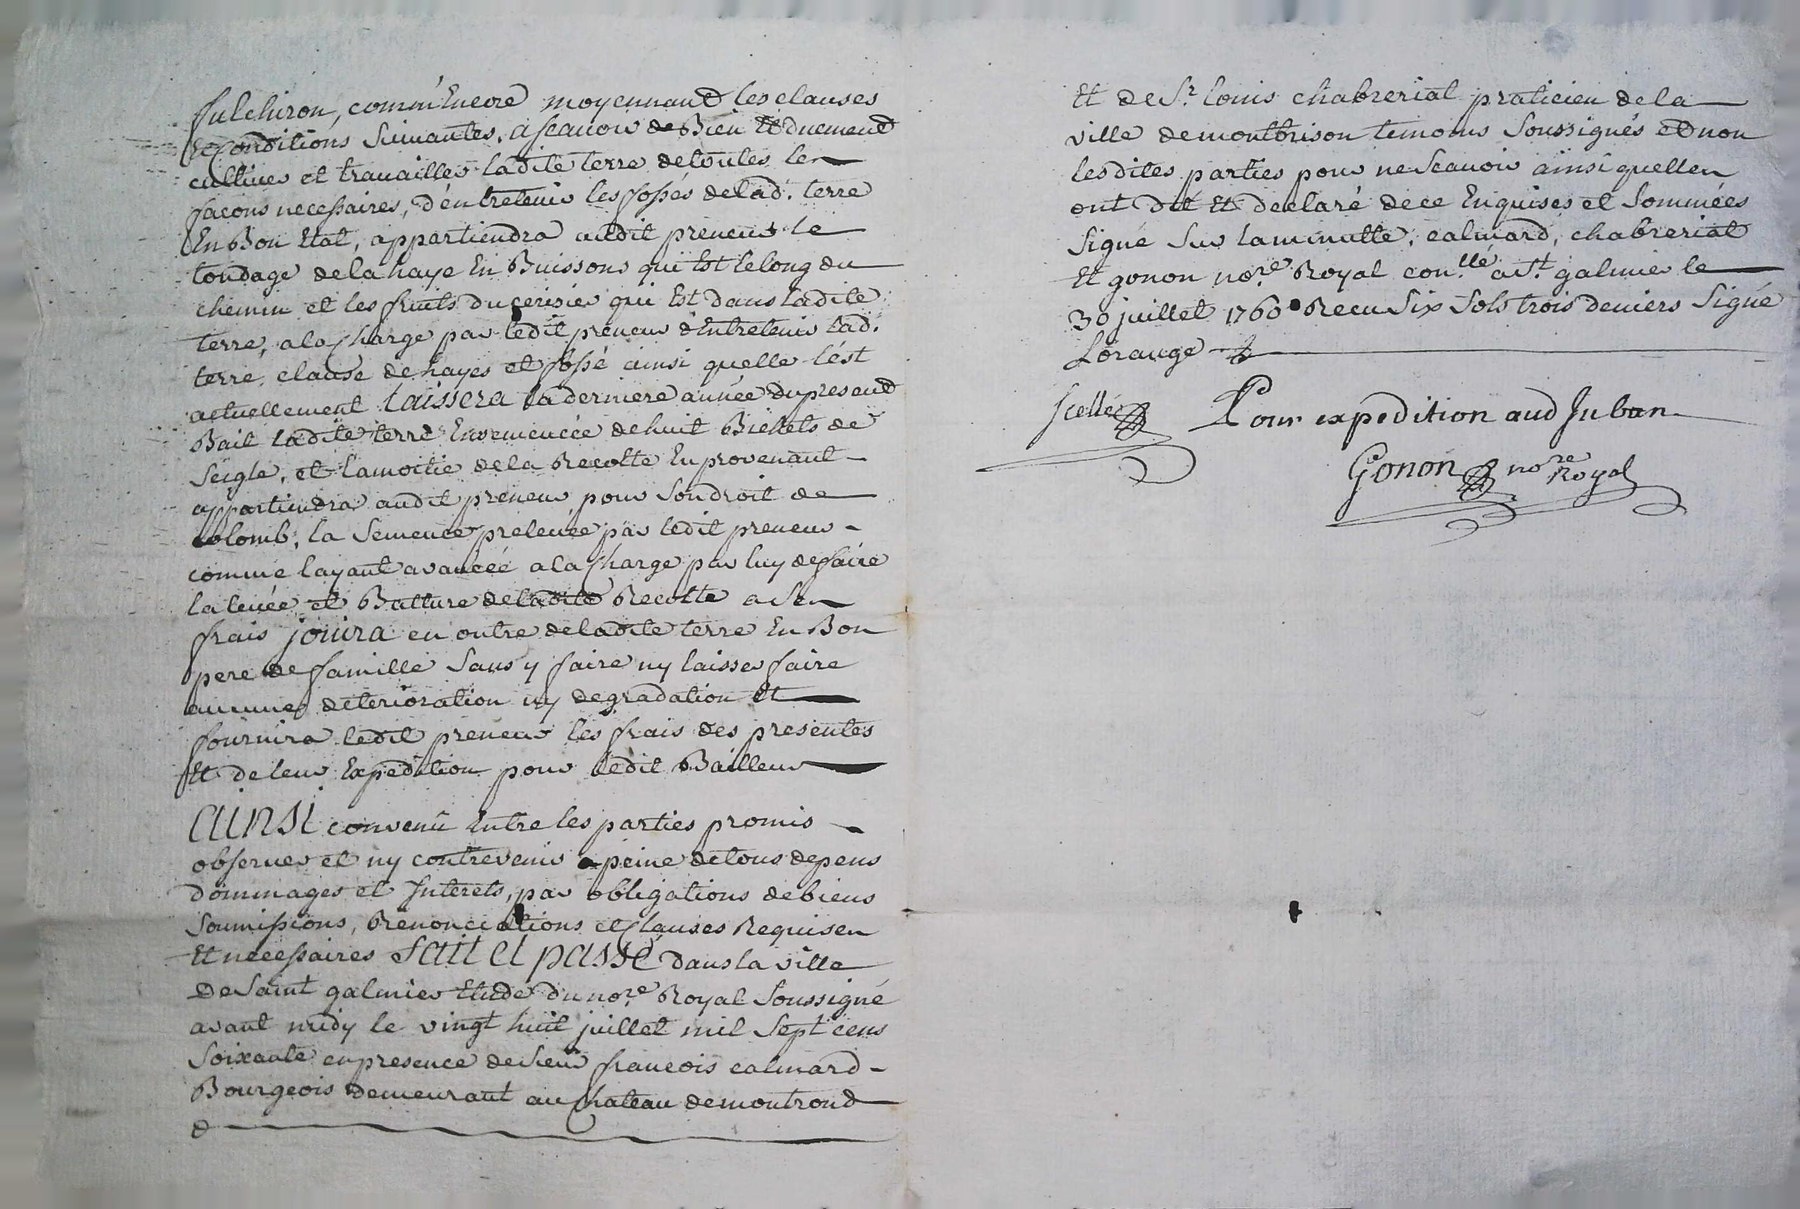 fulchiron, comm'Encore moyennant les clauses
& Conditions Suivantes, ascavoir de Bien Et duement
cultiver et travailler ladite terre de toutes les
facons necessaires, d'entretenir les fossés de lad. terre
En Bon Etat, appartiendra audit preneur le
tondage de la haye En Buissons qui Est le long du
chemin et les fruits du cerisier qui Est dans ladite
terre, ala charge par ledit preneur d'Entretenir lad.
terre, clause de hayes et fossé ainsi quelle l'ést
actuellement laissera la derniere année du present
Bail ladite terre Ensemencée de huit Bichets de
Seigle, et lamoitié de la Recolte En provenant
appartiendra audit preneur pour Son droit de
colomb, la Semence prelevée par ledit preneur
comme layant avancée ala charge par luy de faire
la levée et Batture de ladite Recolte a Ses
frais jouira en outre de ladite terre En Bon
pere de famille Sans y faire ny laisser faire
aucunes déterioration ny degradation Et
fournira ledit preneur les frais des presentes
Et de leur Expedition pour ledit Bailleur
ainsi convenû Entre les parties promis
observer et ny contrevenir apeine de tous depens
dommages et Interets, par obligations de biens
Soumissions, Renonciations et clauses Requises
Et necessaires fait et passé dans la ville
de Saint galmier Etude du no.re Royal Soussigné
avant midy le vingt huit juillet mil Sept cens
Soixante en presence de Sieur francois calmard
Bourgeois demeurant au chateau de montrond
Et de S.r louis chabrerial praticien de la
ville de montbrison temoins Soussignés et non
lesdites parties pour ne Scavoir ainsi quelles
ont dit Et declaré de ce Enquises et Sommées
Signé Sur la minutte, calmard, chabreriat
Et gonon no.re Royal con.llé a S.t galmier le
30 juillet 1760 Recu Six Sols trois deniers Signé
Lorange
Scellé
Pour expedition aud Juban
Gonon no.re
Royal